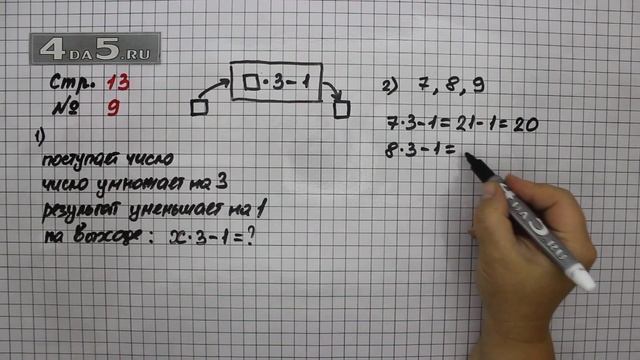 4DA5.RU
Стр. 13
№ 9
□·3-1
1)
поступает число
число умножает на 3
результат уменьшает на 1
на выходе: x·3-1=?
2) 7, 8, 9
7·3-1=21-1=20
8·3-1=
4DA5.RU